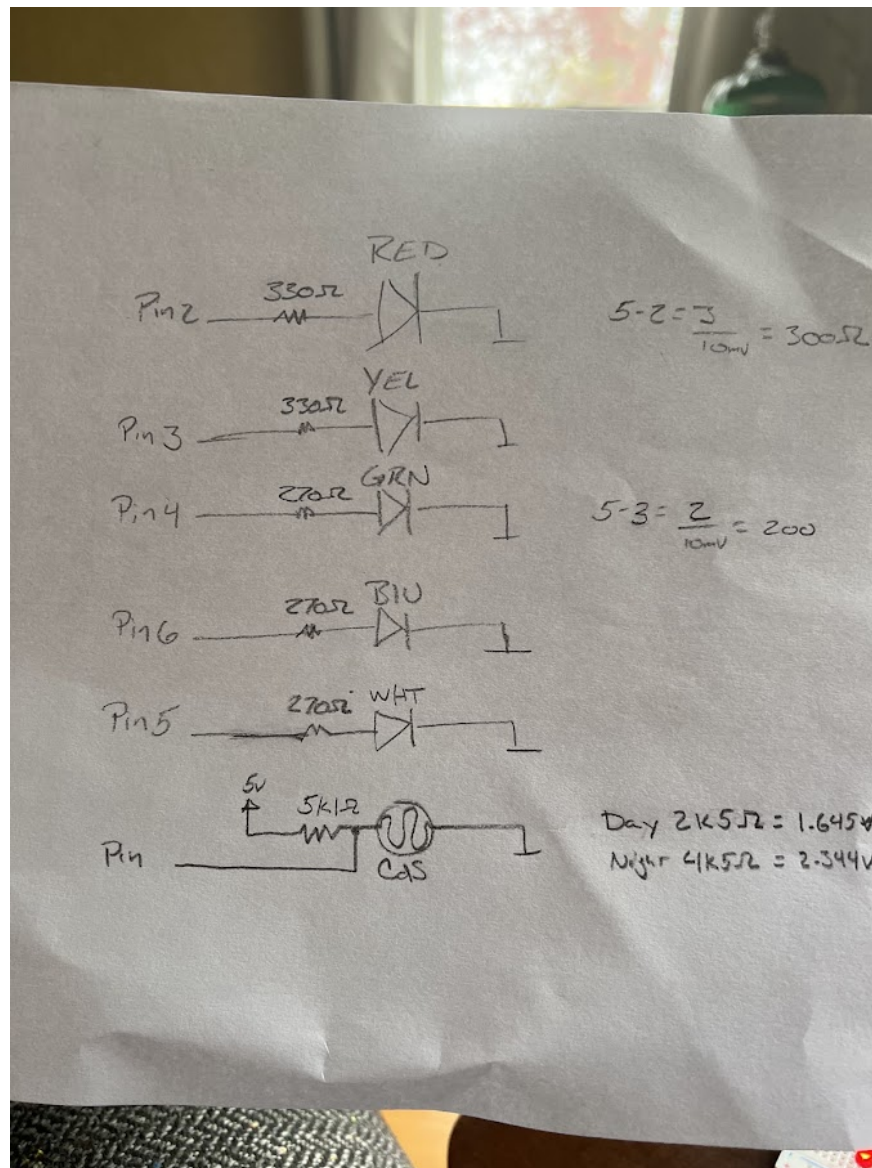 RED
Pin 2 330Ω 5-2 = 3/10mV = 300Ω
YEL
Pin 3 330Ω
GRN
Pin 4 270Ω 5-3 = 2/10mV = 200
BlU
Pin 6 270Ω
WHT
Pin 5 270Ω
5v
5K1Ω
Pin
CdS
Day 2K5Ω = 1.645v
Night 4K5Ω = 2.344v